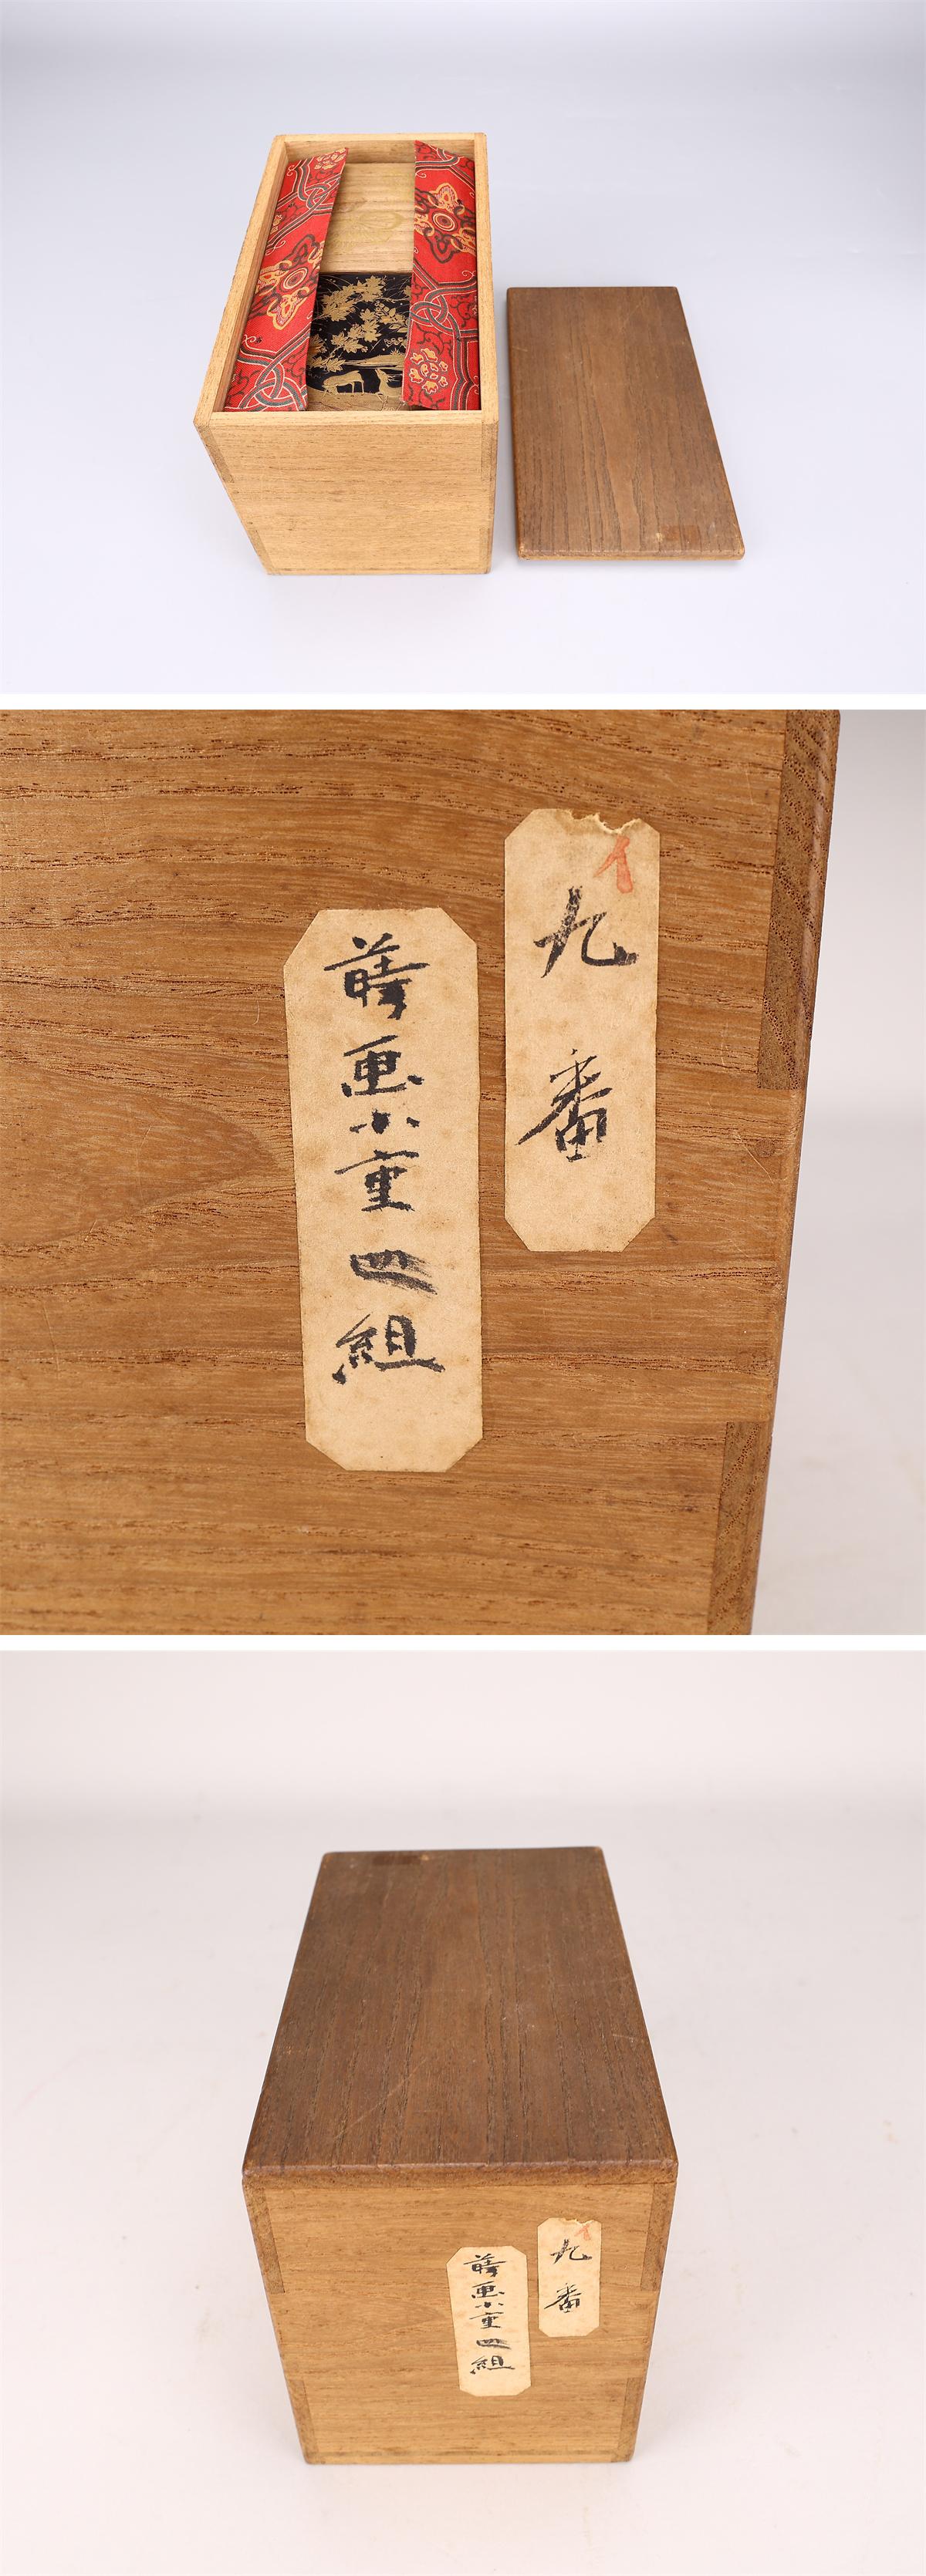 イ
九番
蒔画小重四組
九番
蒔画小重四組